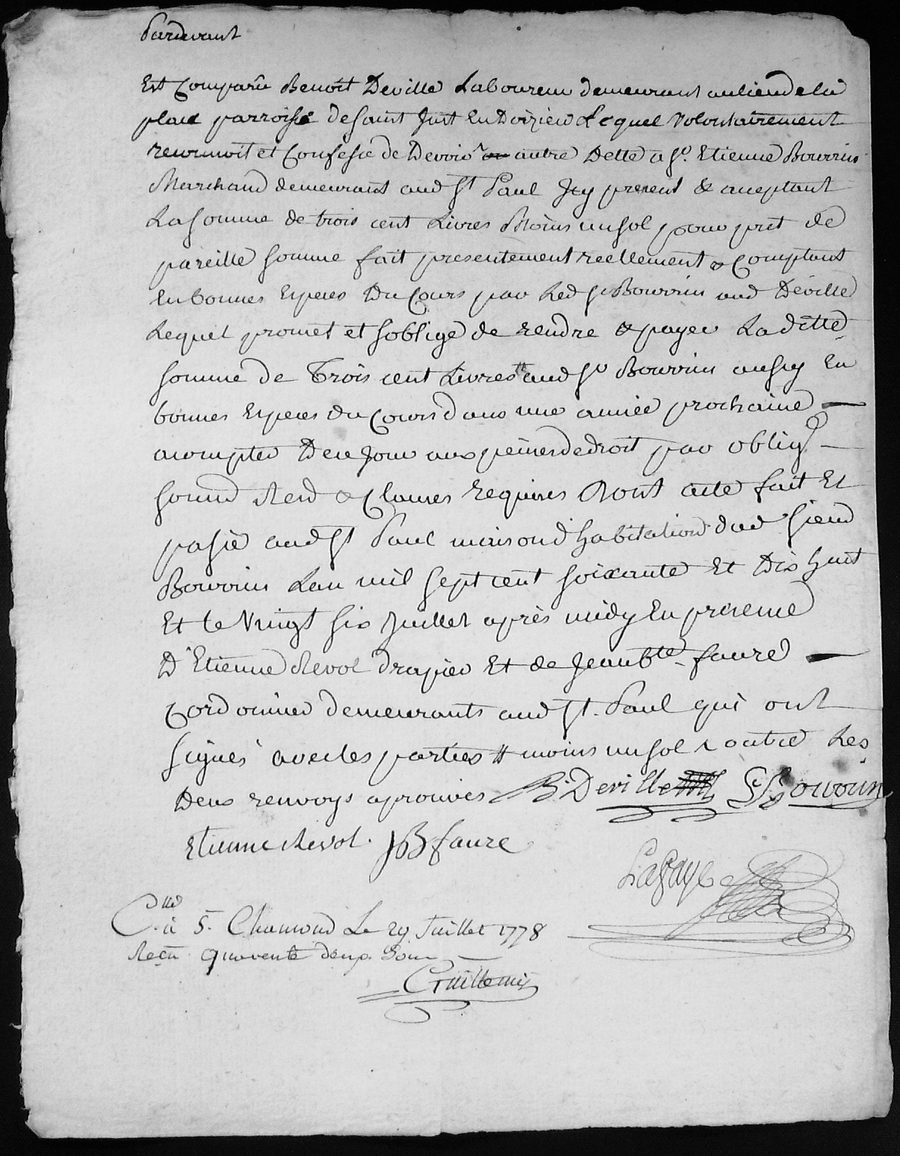 Pardevant
Est Comparu Benoit Deville Laboureur demeurant au lieu de la
place parroisse de saint Just En Doizieu Lequel Volontairement
reconnoit et Confesse de Devoir autre Dette a sr. Etienne Bouvrin
Marchand demeurant aud St Paul Icy present & aceptant
La somme de trois cent Livres Moins un sol pour pret de
pareille somme fait presentement reellement & Comptant
En bonnes Especes Du Cours par Led Sr Bouvrin aud Deville
Lequel promet et soblige de rendre & payer La ditte
somme de Trois cent Livres aud Sr Bouvrin aussy En
bonnes Especes du Cours dans une année prochaine
a compter De ce Jour aux peines de droit par oblig.
soumd Rend & Clauses requises Dont acte fait Et
passé aud St Paul maison d'habitation dud Sieur
Bouvrin Lan mil sept cent soixante Et Dix huit
Et le Vingt six Juillet après midy En presence
D'Etienne Revol drapier Et de Jean Bte. faure
Cordonnier demeurants aud St. Paul qui ont
signé avec les parties # moins un sol outre Les
Deux renvoys aprouvés B. Deville E. Bouvrin
Etienne Revol. JB faure
Lafay
C.lle à St. Chamond Le 29 Juillet 1778
Recu quarente deux sous
Guillemin